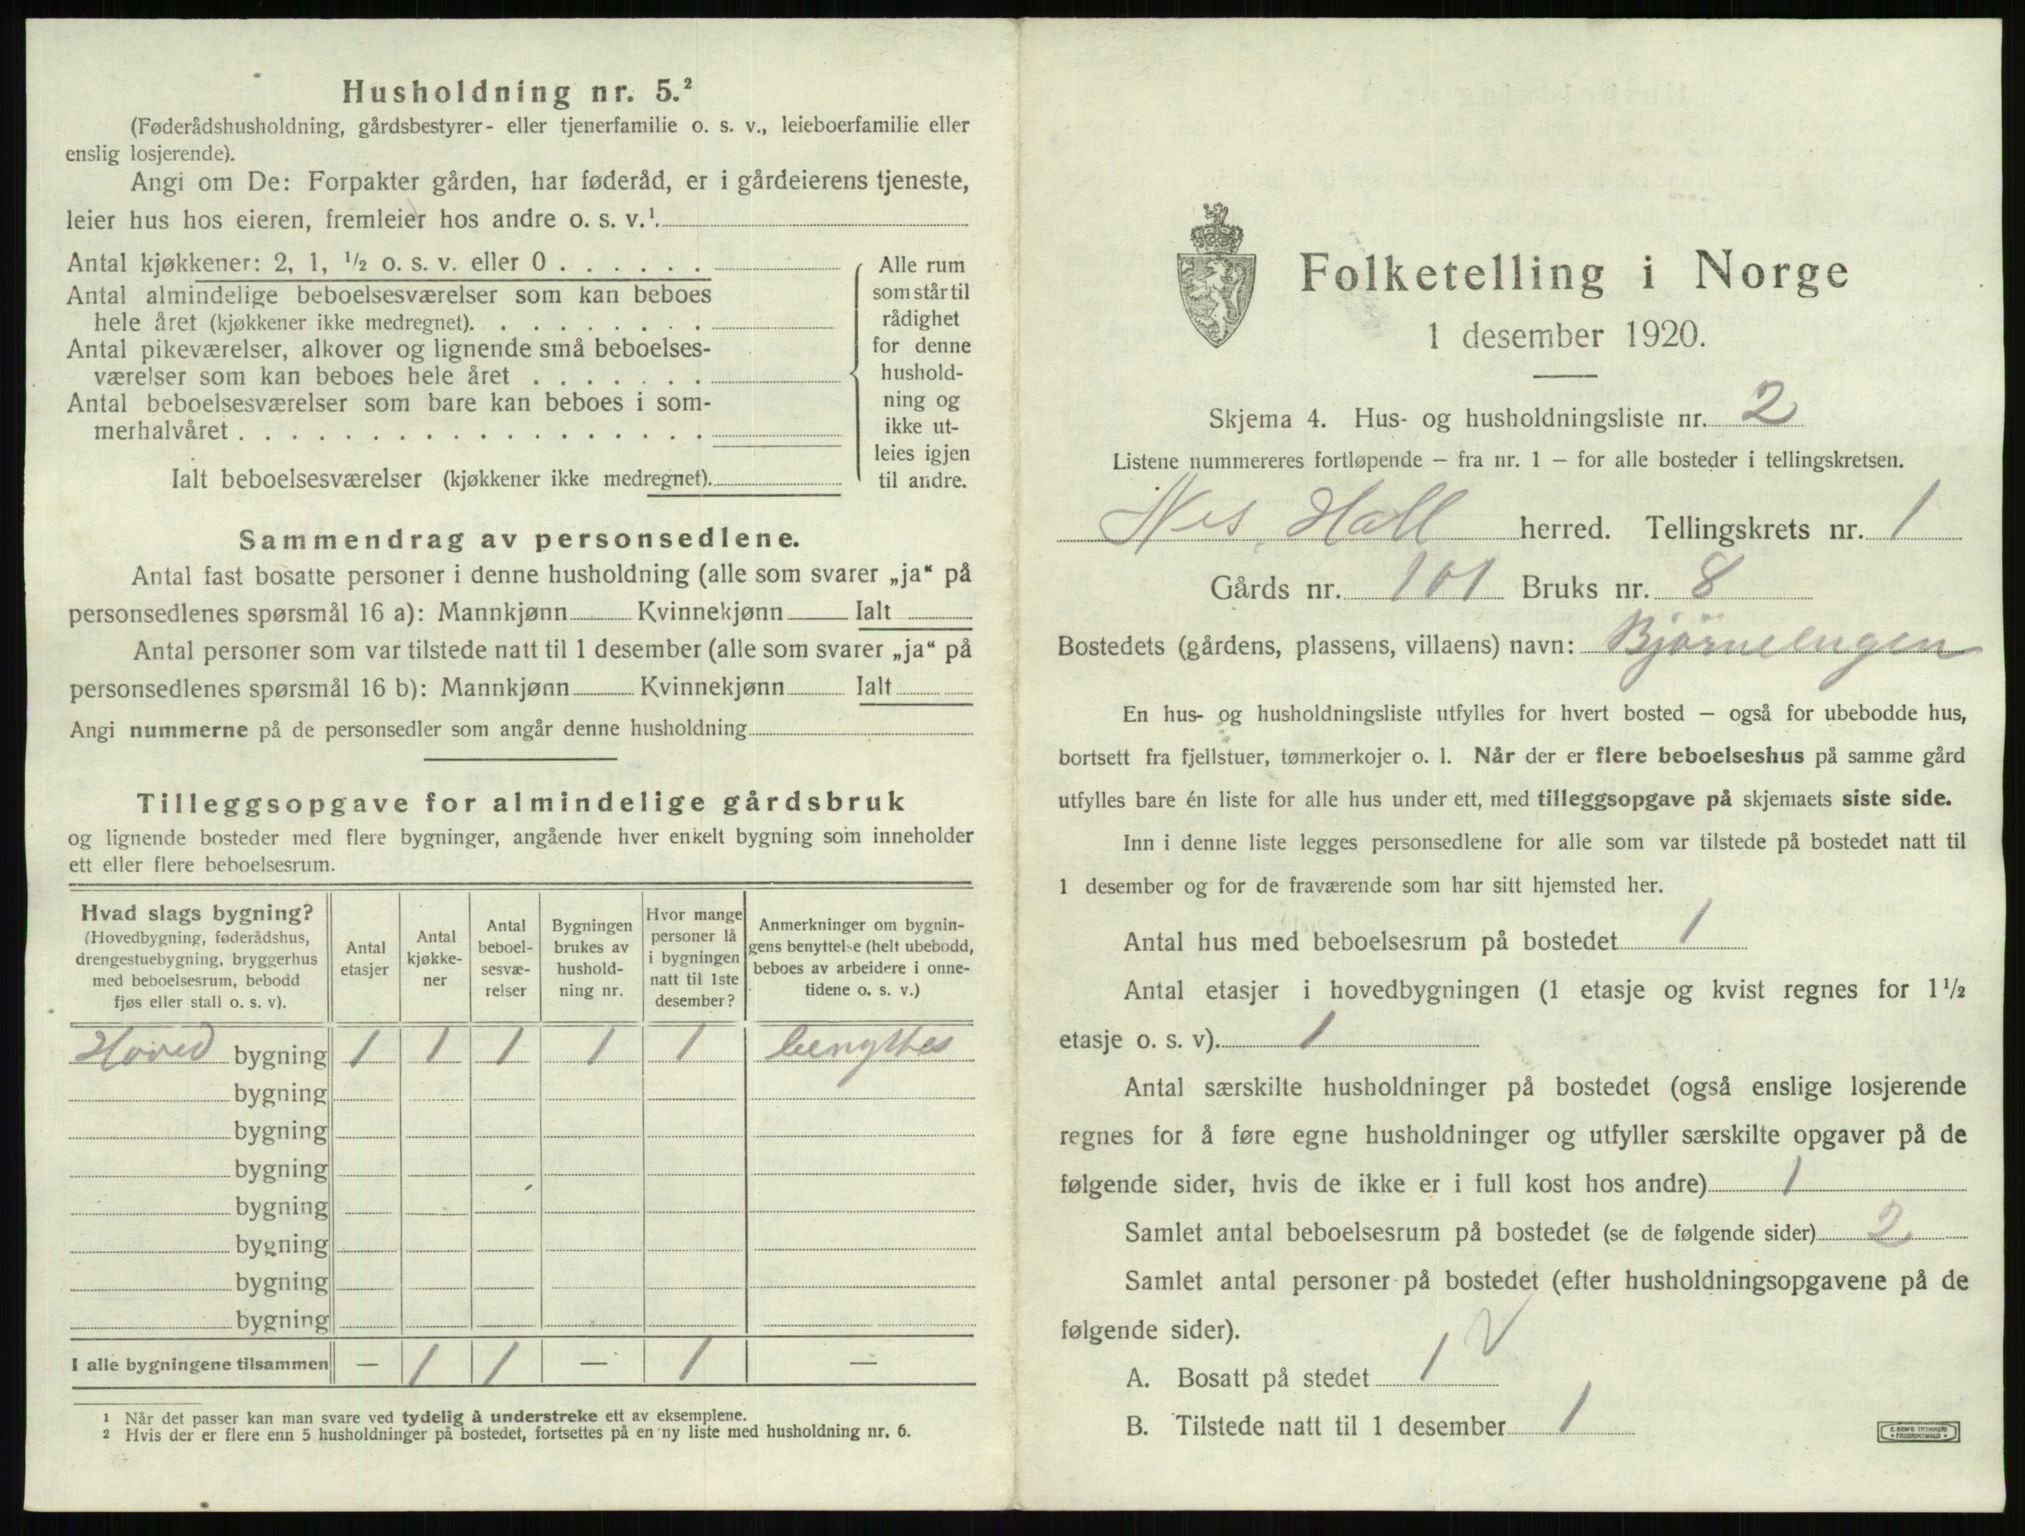 Husholdning nr. 5.²
(Føderådshusholdning, gårdsbestyrer- eller tjenerfamilie o. s. v., leieboerfamilie eller
enslig losjerende).
Angi om De: Forpakter gården, har føderåd, er i gårdeierens tjeneste,
leier hus hos eieren, fremleier hos andre o. s. v.¹.
Antal kjøkkener: 2, 1, ½ o. s. v. eller 0 . . . . . .
Antal almindelige beboelsesværelser som kan beboes
hele året (kjøkkener ikke medregnet). . . . . . . . .
Antal pikeværelser, alkover og lignende små beboelses-
værelser som kan beboes hele året . . . . . . .
Antal beboelsesværelser som bare kan beboes i som-
merhalvåret . . . . . . . . . . . . . . . . . .
Ialt beboelsesværelser (kjøkkener ikke medregnet).
Alle rum
som står til
rådighet
for denne
hushold-
ning og
ikke ut-
leies igjen
til andre.
Sammendrag av personsedlene.
Antal fast bosatte personer i denne husholdning (alle som svarer „ja“ på
personsedlenes spørsmål 16 a): Mannkjønn Kvinnekjønn Ialt
Antal personer som var tilstede natt til 1 desember (alle som svarer „ja“ på
personsedlenes spørsmål 16 b): Mannkjønn Kvinnekjønn Ialt
Angi nummerne på de personsedler som angår denne husholdning
Tilleggsopgave for almindelige gårdsbruk
og lignende bosteder med flere bygninger, angående hver enkelt bygning som inneholder
ett eller flere beboelsesrum.
Hvad slags bygning?
(Hovedbygning, føderådshus,
drengestuebygning, bryggerhus
med beboelsesrum, bebodd
fjøs eller stall o. s. v).
Antal
etasjer
Antal
kjøkke-
ner
Antal
beboel-
sesvæ-
relser
Bygningen
brukes av
hushold-
ning nr.
Hvor mange
personer lå
i bygningen
natt til 1ste
desember?
Anmerkninger om bygnin-
gens benyttelse (helt ubebodd,
beboes av arbeidere i onne-
tidene o. s. v.)
Hoved bygning 1 1 1 1 1 benyttes
bygning
bygning
bygning
bygning
bygning
bygning
bygning
I alle bygningene tilsammen — 1 1 — 1 —
1 Når det passer kan man svare ved tydelig å understreke ett av eksemplene.
2 Hvis der er flere enn 5 husholdninger på bostedet, fortsettes på en ny liste med husholdning nr. 6.
Folketelling i Norge
1 desember 1920.
Skjema 4. Hus- og husholdningsliste nr. 2
Listene nummereres fortløpende – fra nr. 1 – for alle bosteder i tellingskretsen.
Nes, Hall herred. Tellingskrets nr. 1
Gårds nr. 101 Bruks nr. 8
Bostedets (gårdens, plassens, villaens) navn: Bjørneengen
En hus- og husholdningsliste utfylles for hvert bosted – også for ubebodde hus,
bortsett fra fjellstuer, tømmerkojer o. l. Når der er flere beboelseshus på samme gård
utfylles bare én liste for alle hus under ett, med tilleggsopgave på skjemaets siste side.
Inn i denne liste legges personsedlene for alle som var tilstede på bostedet natt til
1 desember og for de fraværende som har sitt hjemsted her.
Antal hus med beboelsesrum på bostedet 1
Antal etasjer i hovedbygningen (1 etasje og kvist regnes for 1½
etasje o. s. v). 1
Antal særskilte husholdninger på bostedet (også enslige losjerende
regnes for å føre egne husholdninger og utfyller særskilte opgaver på de
følgende sider, hvis de ikke er i full kost hos andre) 1
Samlet antal beboelsesrum på bostedet (se de følgende sider) 2
Samlet antal personer på bostedet (efter husholdningsopgavene på de
følgende sider).
A. Bosatt på stedet 1 V
B. Tilstede natt til 1 desember 1